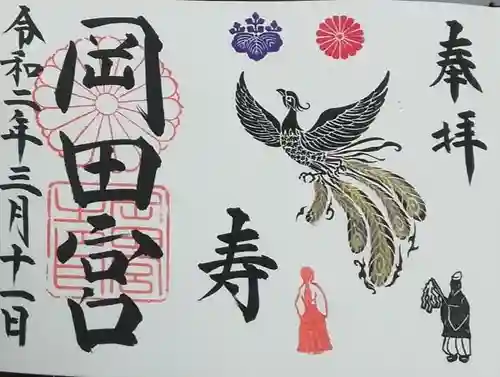 奉拝
寿
寿
岡田宮
令和二年三月十一日